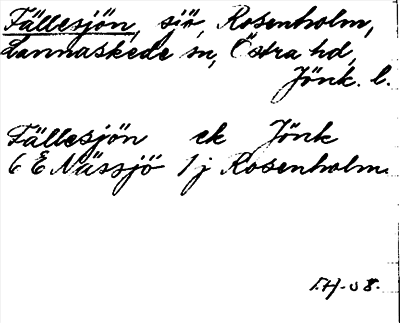 Fällesjön, sjö, Rosenholm,
Lannaskede sn, Östra hd,
Jönk. l.
Fällesjön ek Jönk
6 E Nässjö 1j Rosenholm.
I.H-08.